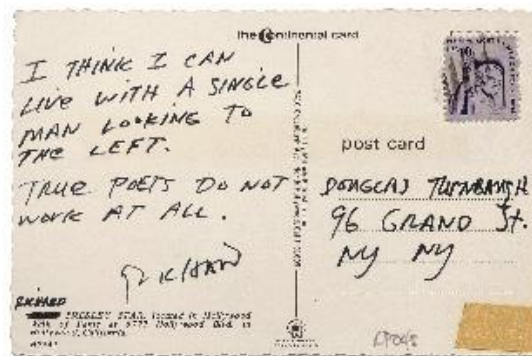 the Continental card
I THINK I CAN
LIVE WITH A SINGLE
MAN LOOKING TO
THE LEFT.
TRUE POETS DO NOT
WORK AT ALL.
RICHARD
RICHARD
PRESLEY STAR, located in Hollywood
Walk of Fame at 6777 Hollywood Blvd. in
Hollywood, California.
post card
DOUGLAS TURNBAUGH
96 GRAND St.
NY NY